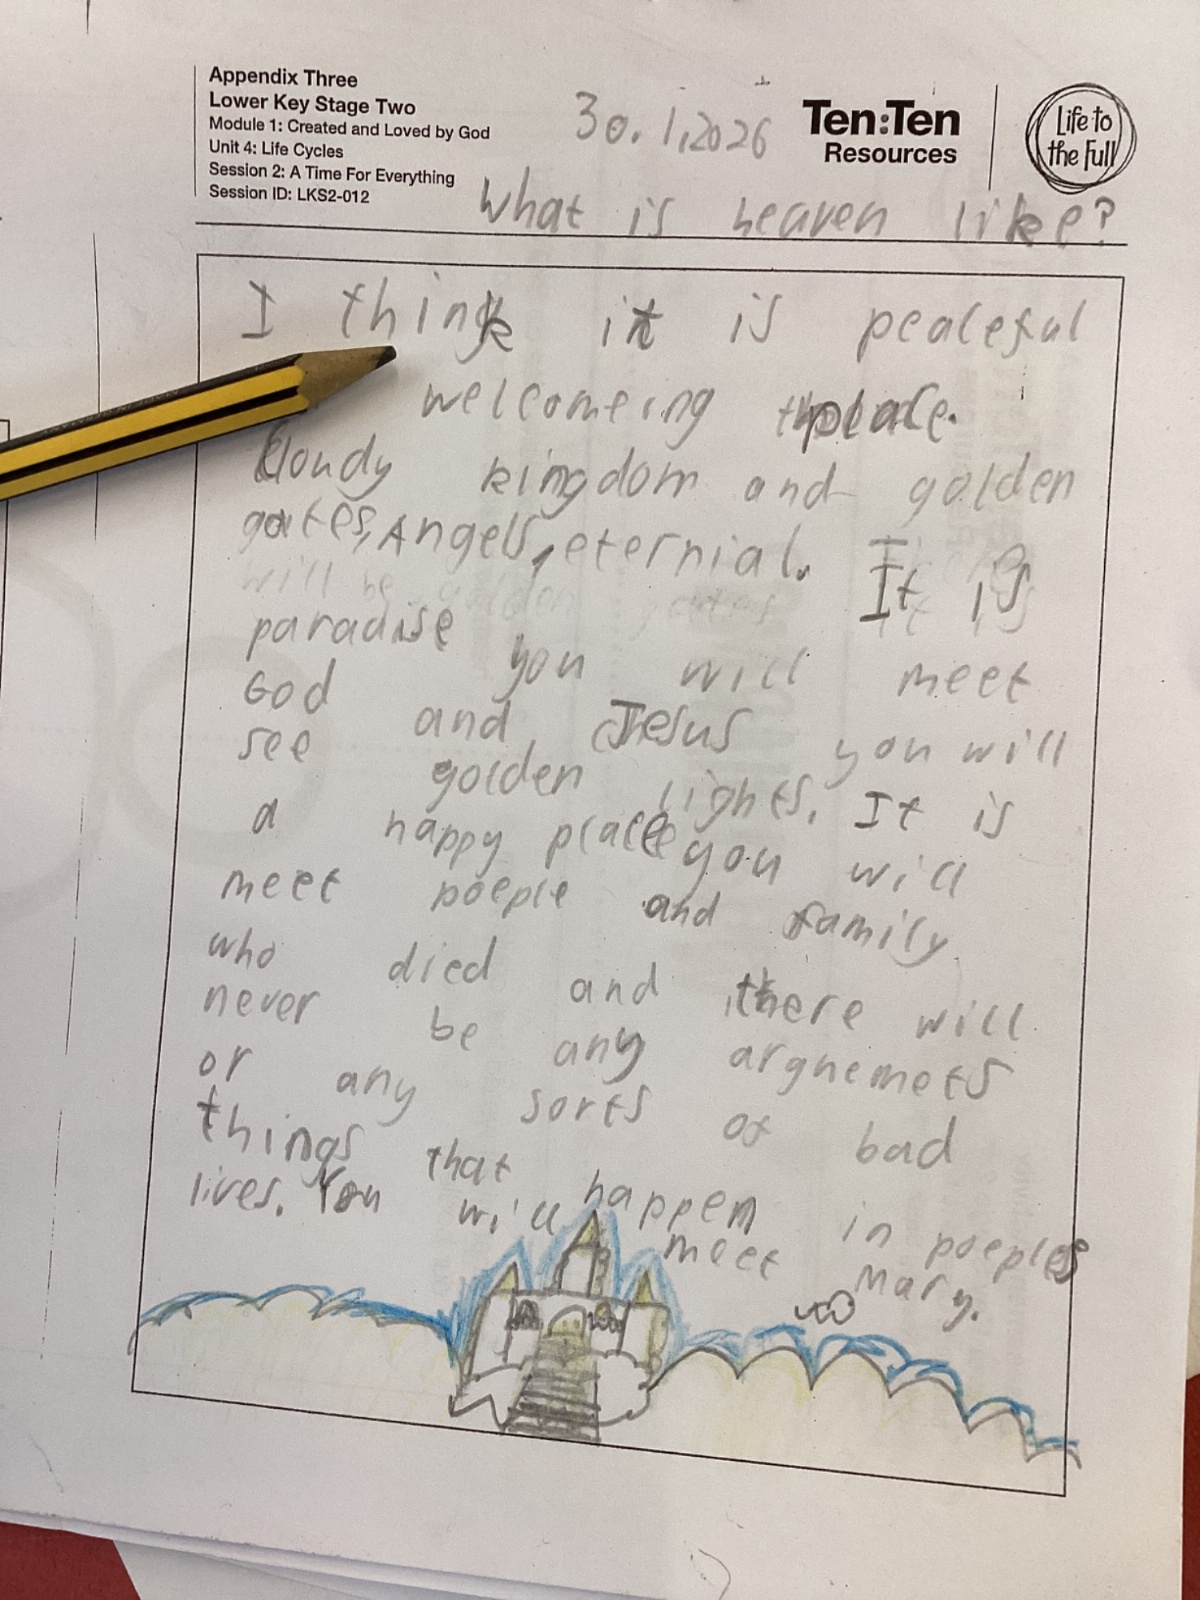 Appendix Three
Lower Key Stage Two
Module 1: Created and Loved by God
Unit 4: Life Cycles
Session 2: A Time For Everything
Session ID: LKS2-012
30.1.2026
Ten:Ten
Resources
Life to
the Full
What is heaven like?
I think it is peaceful
welcomeing place.
Cloudy kingdom and golden
gates, Angels, eternial. It is
paradise you will meet
God and Jesus you will
see golden lights. It is
a happy place you will
meet poeple and family
who died and there will
never be any arguemets
or any sorts of bad
things that happen in poeples
lives. You will meet Mary.